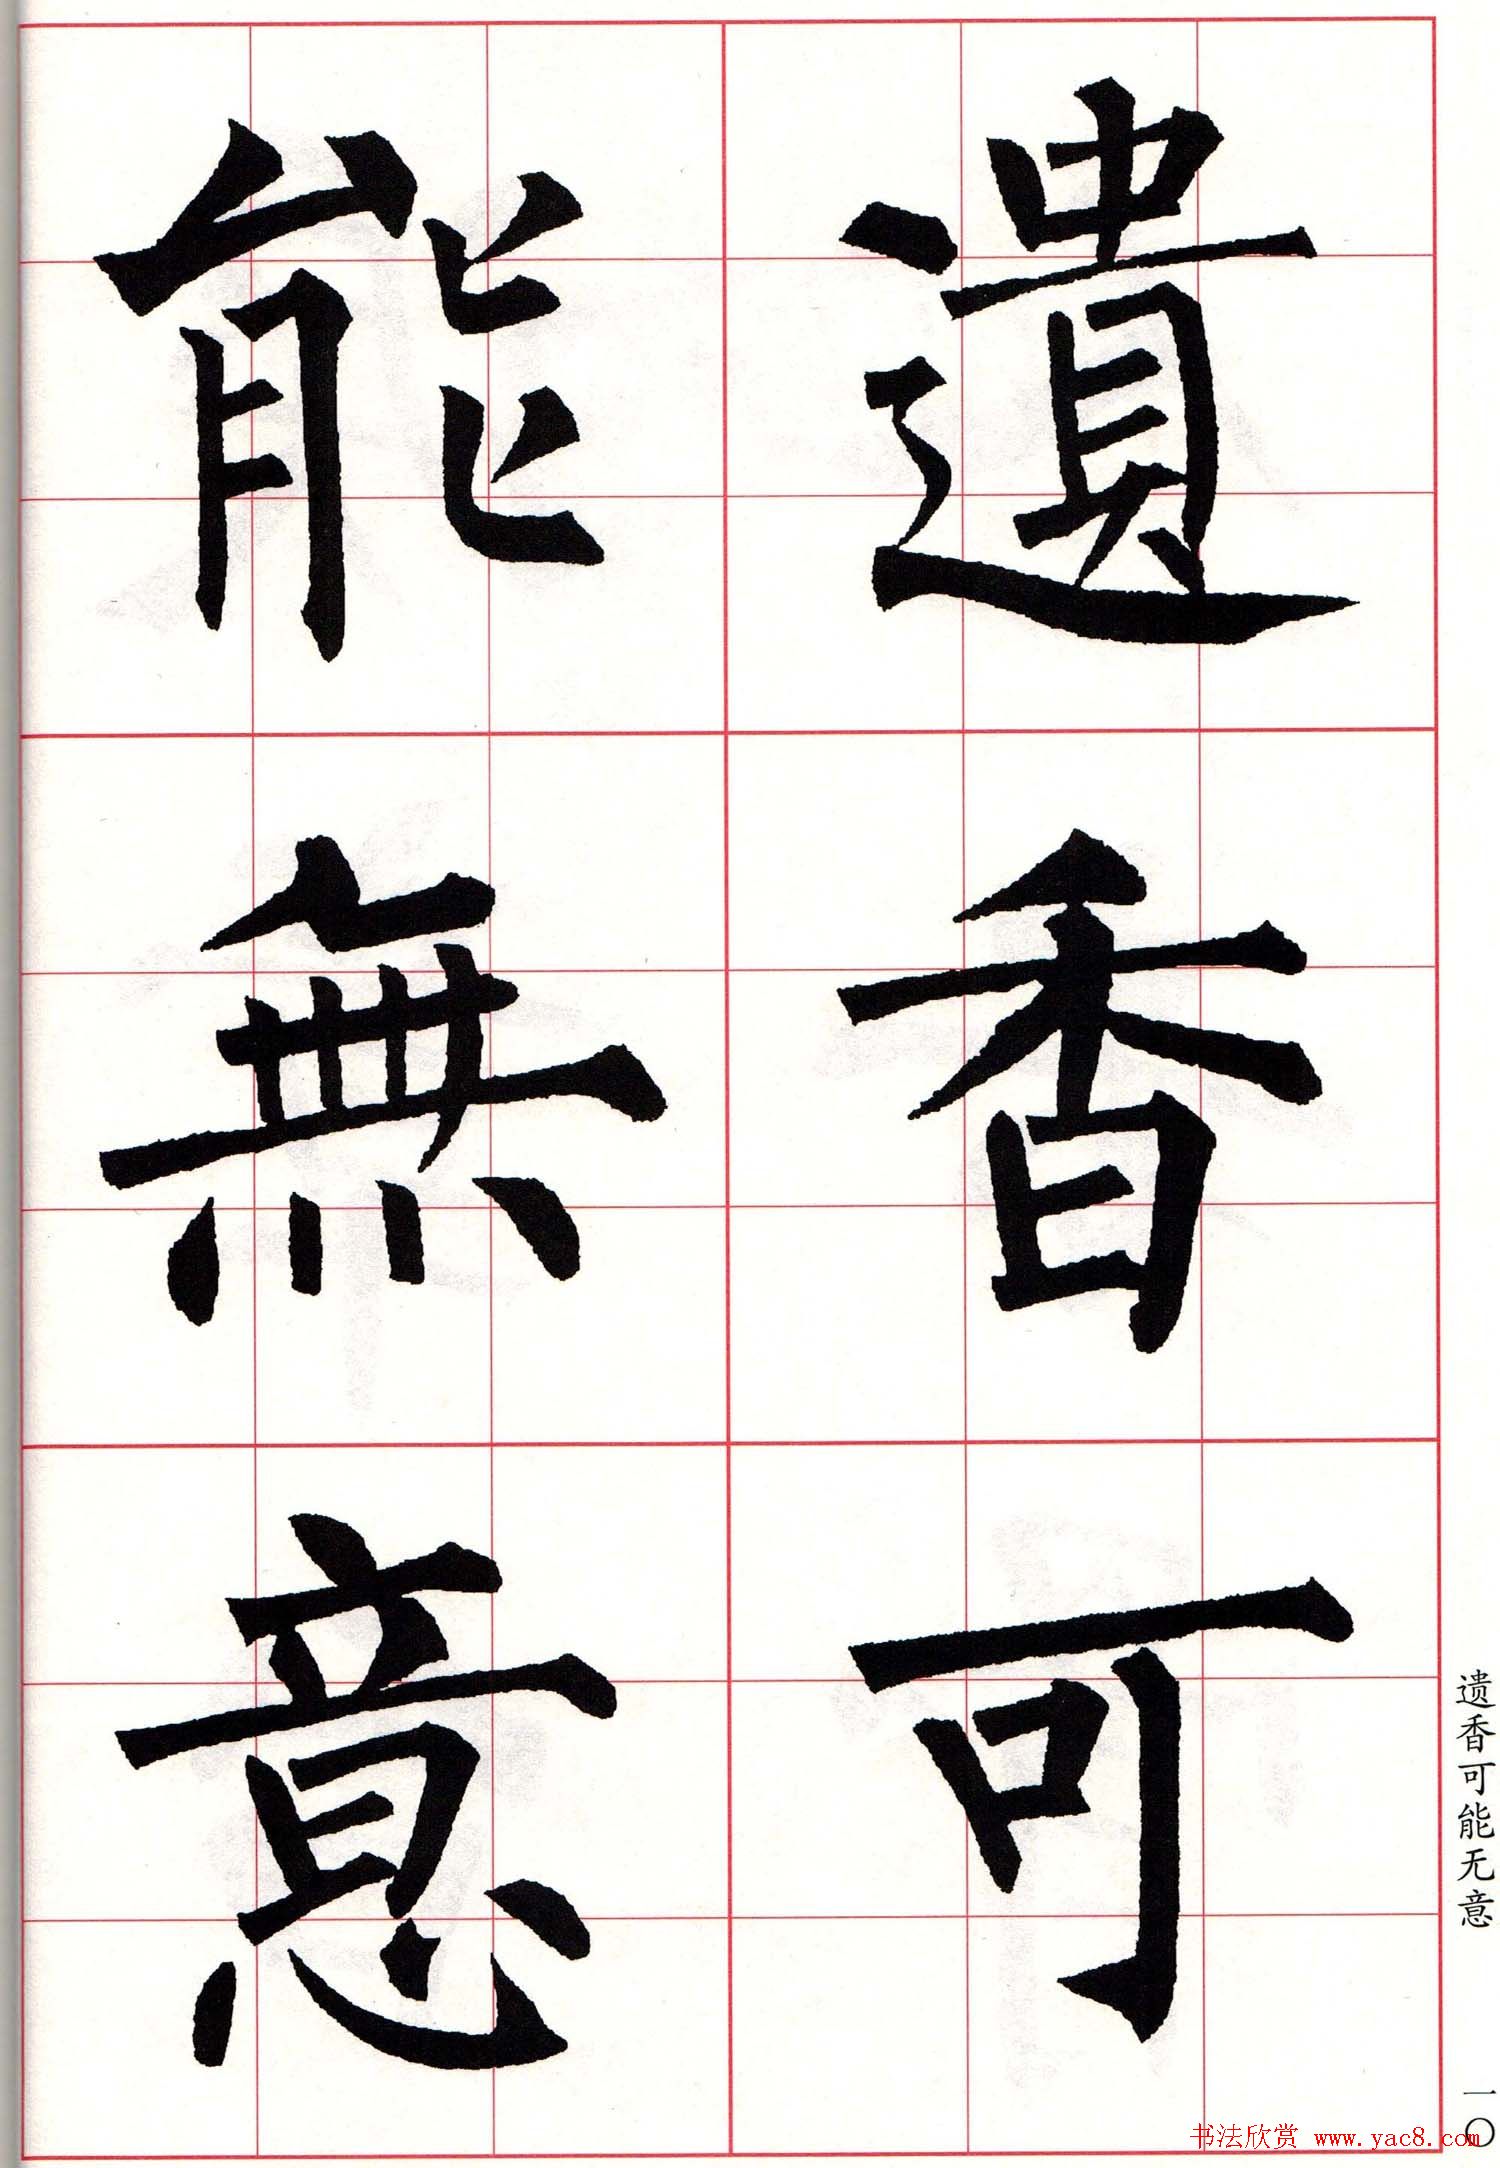 遺香可
能無意
遗香可能无意
一〇
书法欣赏 www.yac8.com